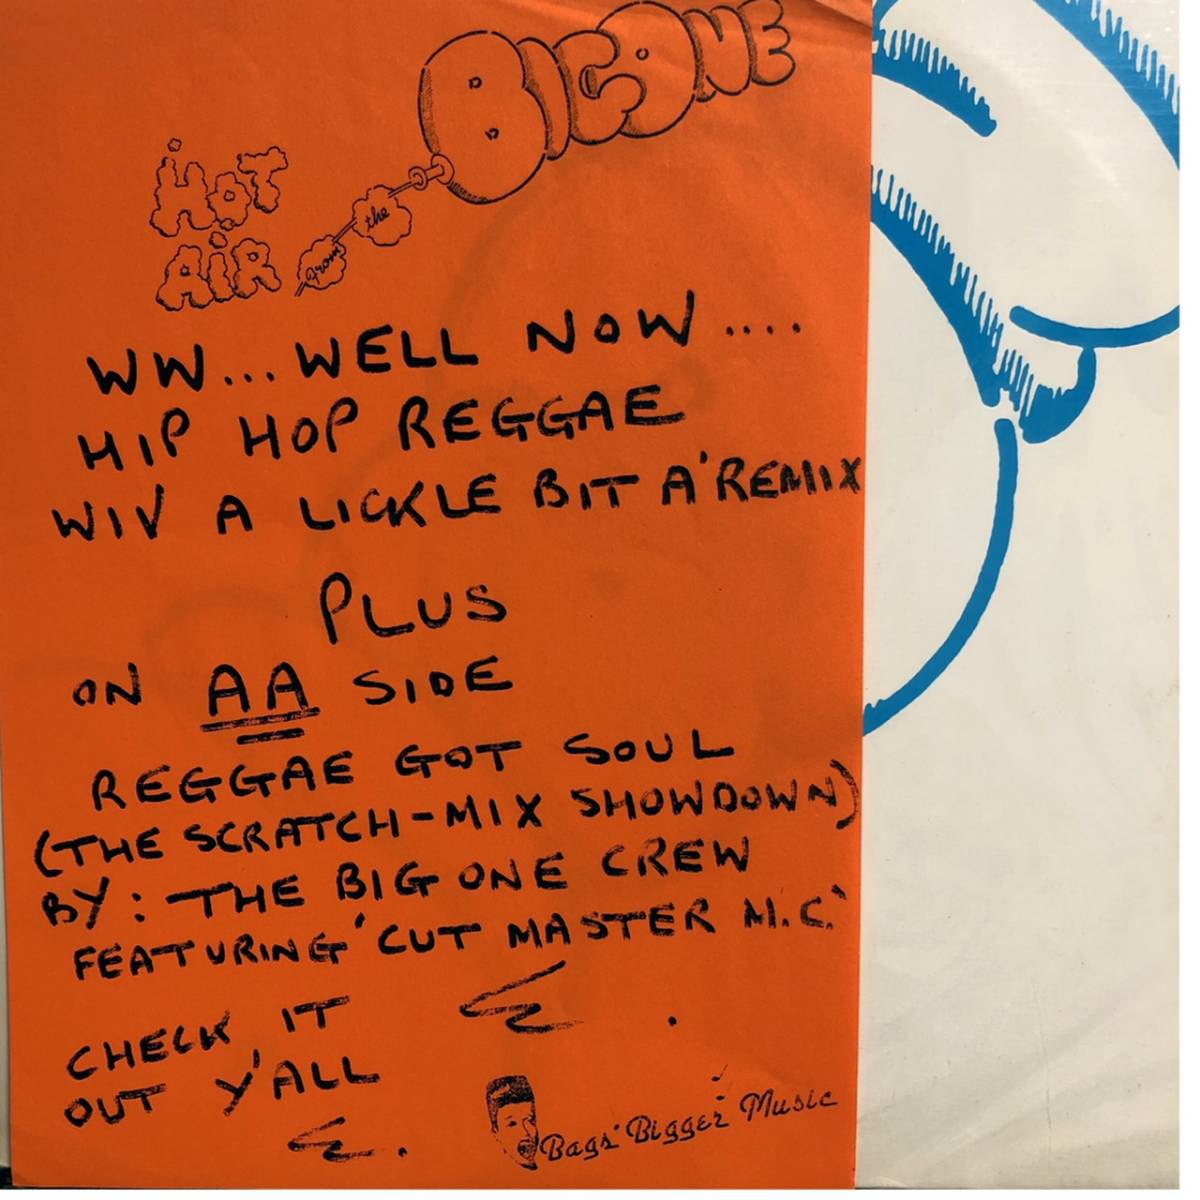 BIG ONE
HOT
AIR
from the
WW...WELL NOW....
HIP HOP REGGAE
WIV A LICKLE BIT A' REMIX
PLUS
ON AA SIDE
REGGAE GOT SOUL
(THE SCRATCH-MIX SHOWDOWN)
BY: THE BIG ONE CREW
FEATURING 'CUT MASTER M.C.'
CHECK IT
OUT Y'ALL
Bags' Bigger Music